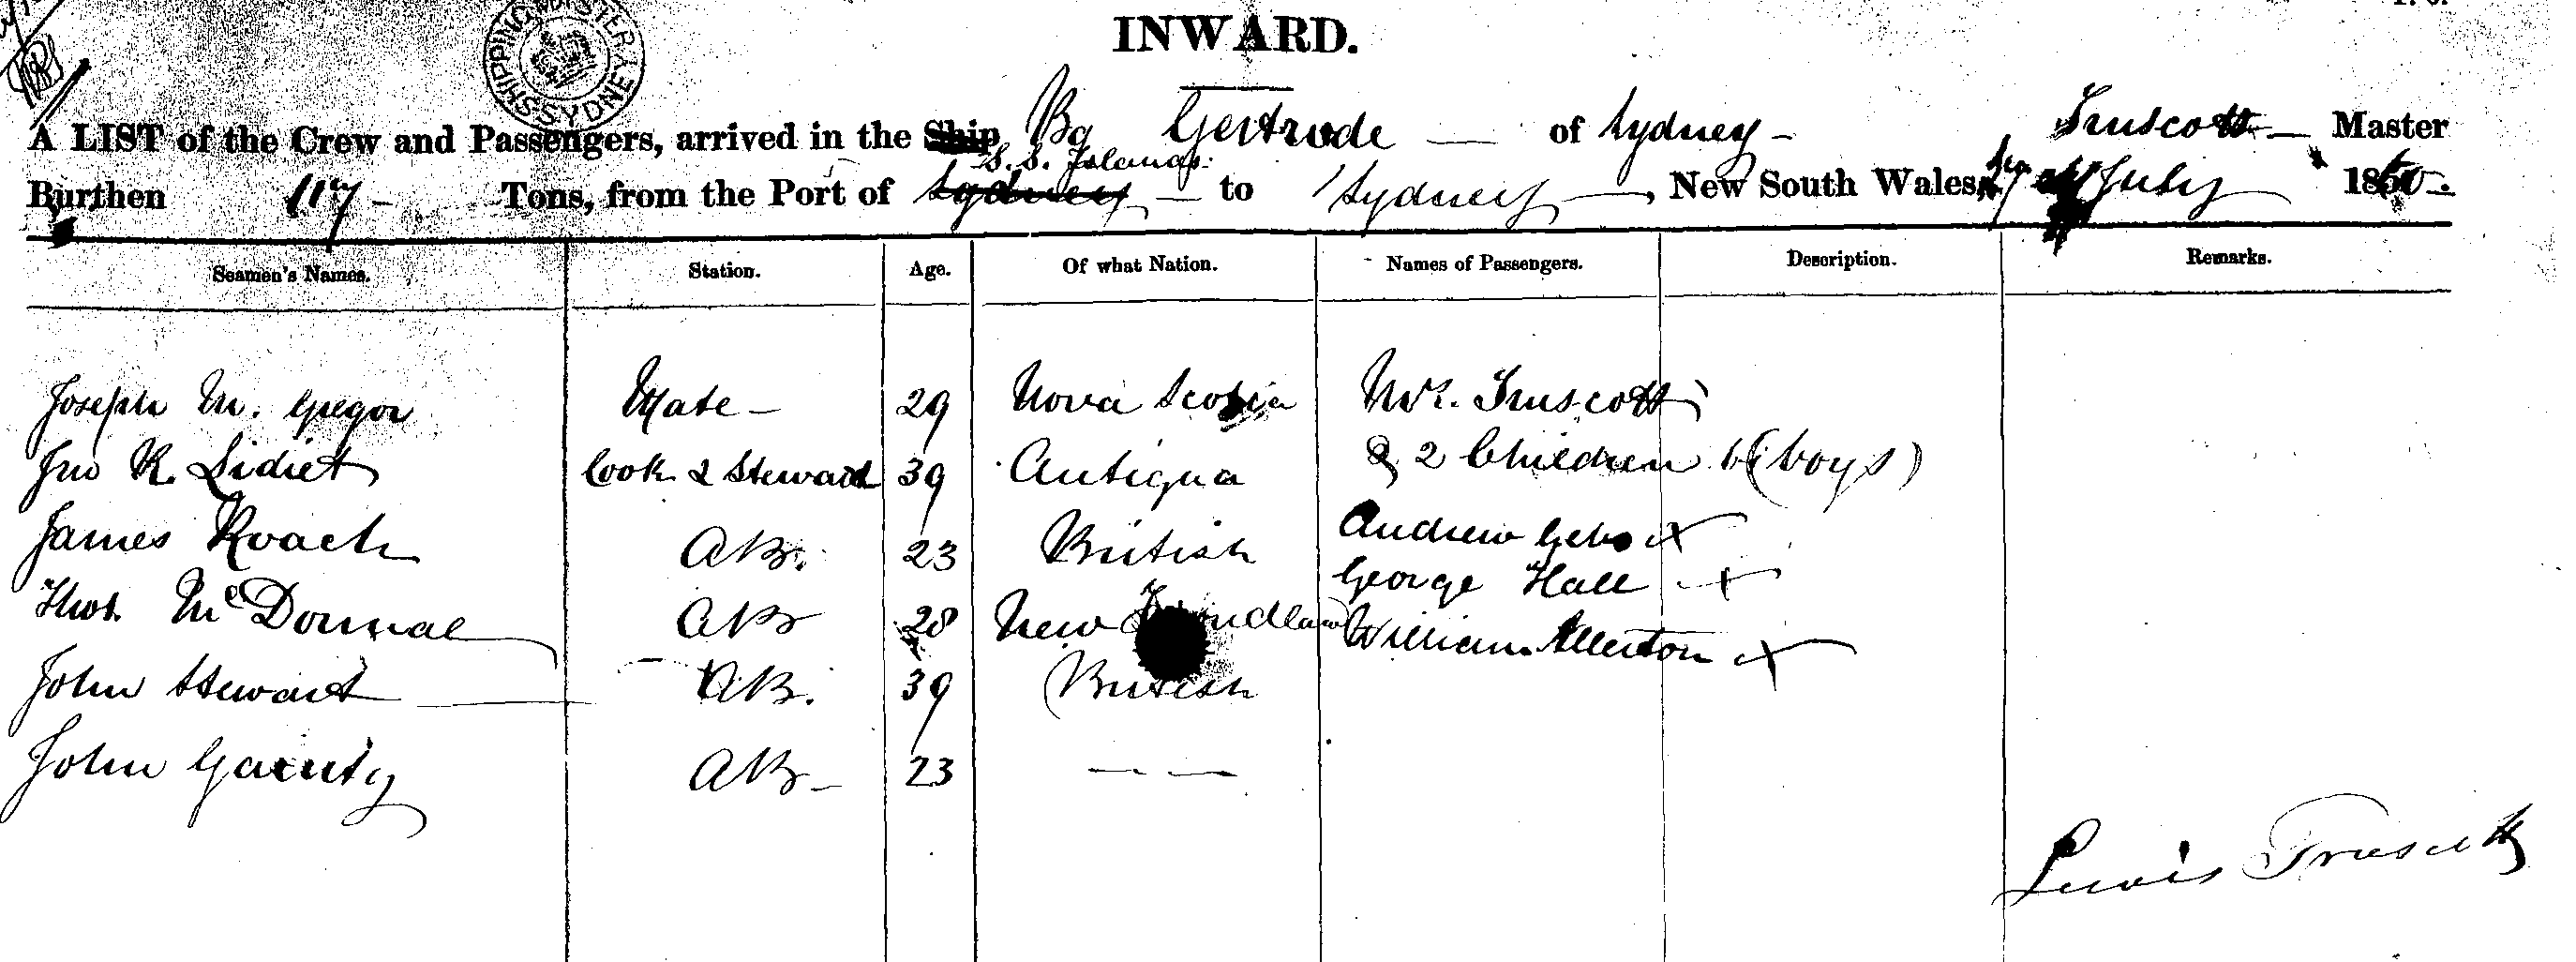 SHIPPING MASTER SYDNEY
INWARD.
A LIST of the Crew and Passengers, arrived in the Ship Bg Gertrude — of Sydney — Truscott — Master
S. S. Islands.
Burthen 117 — Tons, from the Port of Sydney — to Sydney —, New South Wales, July 1860.
Seamen's Names. Station. Age. Of what Nation. Names of Passengers. Description. Remarks.
Joseph M. Gregor Mate — 29 Nova Scotia Mrs. Truscott
Jno R. Lidiet Cook & Steward 39 Antigua & 2 Children (boys)
James Roach AB. 23 British Andrew x
George Hall x
Thos. McDonnal AB 28 New Foundland William Allerton x
John Stewart — AB. 39 British
John Garrity AB — 23 — —
Lewis Truscott